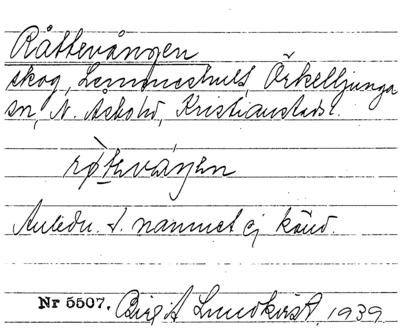 Råttevången
skog, Lemmeshult, Örkelljunga
sn, N. Åsbohd, Kristianstads l.
røteváŋen
Anledn. t. namnet ej känd.
Nr 5507. Birgit Lundkvist, 1939